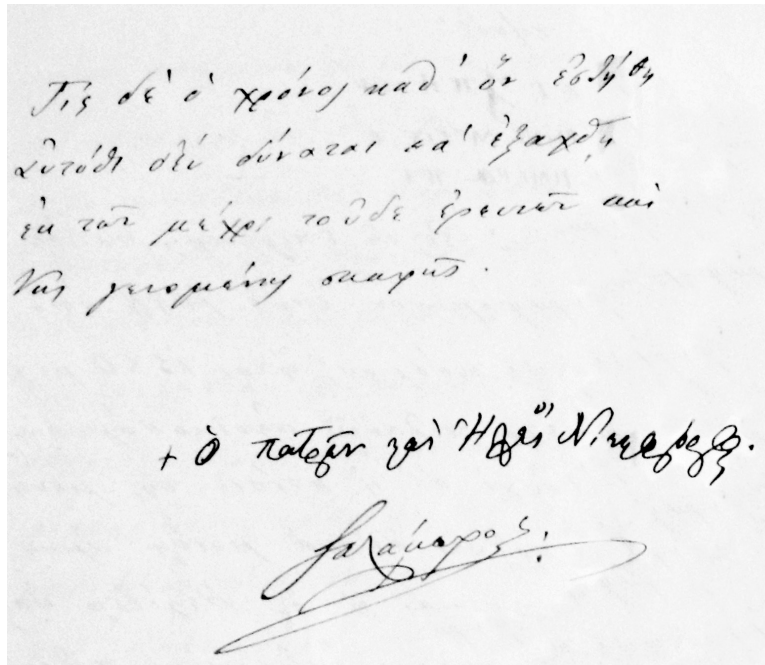 Τίς δὲ ὁ χρόνος καθ' ὃν ἐστήθη
αὐτόθι δὲν δύναται νὰ ἐξαχθῇ
ἐκ τῶν μέχρι τοῦδε ἐρευνῶν καὶ
τῆς γενομένης σκαφῆς.
+ ὁ Πατρῶν καὶ Ἠλείας Νικηφόρος.